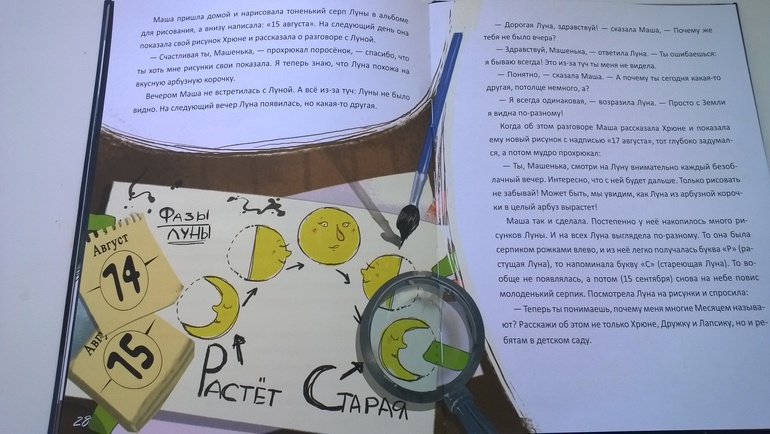 Маша пришла домой и нарисовала тоненький серп Луны в альбоме
для рисования, а внизу написала: «15 августа». На следующий день она
показала свой рисунок Хрюне и рассказала о разговоре с Луной.
— Счастливая ты, Машенька, — прохрюкал поросёнок, — спасибо, что
ты хоть мне рисунки свои показала. Я теперь знаю, что Луна похожа на
вкусную арбузную корочку.
Вечером Маша не встретилась с Луной. А всё из-за туч: Луны не было
видно. На следующий вечер Луна появилась, но какая-то другая.
ФАЗЫ
ЛУНЫ
АВГУСТ
14
АВГУ
15
РАСТЁТ
СТАРАЯ
28
— Дорогая Луна, здравствуй! — сказала Маша, — Почему же
тебя не было вчера?
— Здравствуй, Машенька, — ответила Луна. — Ты ошибаешься:
я бываю всегда! Это из-за туч ты меня не видела.
— Понятно, — сказала Маша. — А почему ты сегодня какая-то
другая, потолще немного, а?
— Я всегда одинаковая, — возразила Луна. — Просто с Земли
я видна по-разному!
Когда об этом разговоре Маша рассказала Хрюне и показала
ему новый рисунок с надписью «17 августа», тот глубоко задумал-
ся, а потом мудро прохрюкал:
— Ты, Машенька, смотри на Луну внимательно каждый безоб-
лачный вечер. Интересно, что с ней будет дальше. Только рисовать
не забывай! Может быть, мы увидим, как Луна из арбузной короч-
ки в целый арбуз вырастет!
Маша так и сделала. Постепенно у неё накопилось много ри-
сунков Луны. И на всех Луна выглядела по-разному. То она была
серпиком рожками влево, и из неё легко получалась буква «Р» (ра-
стущая Луна), то напоминала букву «С» (стареющая Луна). То во-
обще не появлялась, а потом (15 сентября) снова на небе повис
молоденький серпик. Посмотрела Луна на рисунки и спросила:
— Теперь ты понимаешь, почему меня многие Месяцем называ-
ют? Расскажи об этом не только Хрюне, Дружку и Лапсику, но и ре-
бятам в детском саду.